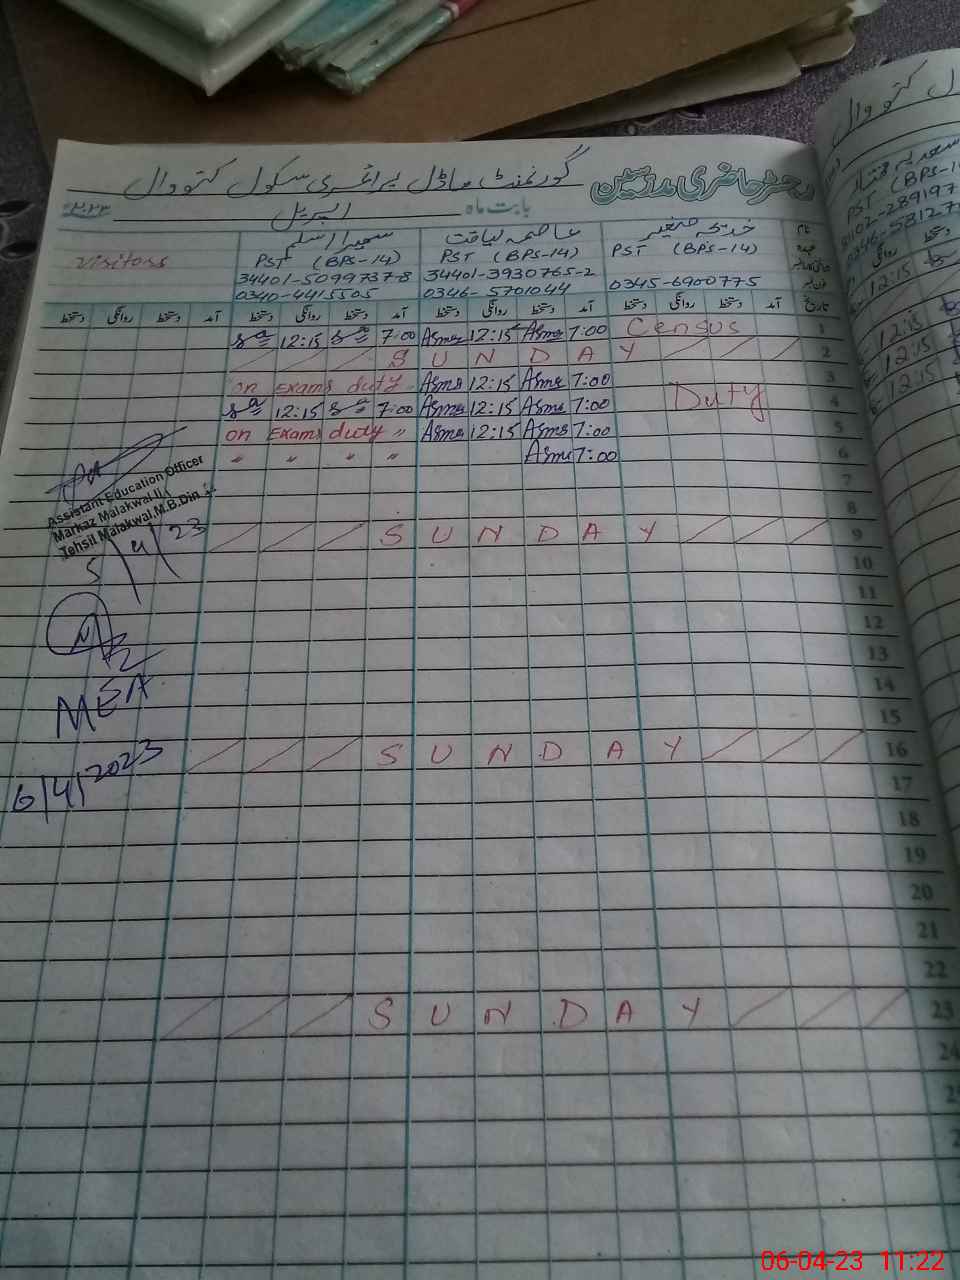 رجسٹر حاضری مدرسین گورنمنٹ ماڈل پرائمری سکول کتووال
بابت ماہ اپریل ۲۰۲۳
نام خدیجہ صغیر عاصمہ لیاقت سمیرا اسلم
عہدہ PST (BPS-14) PST (BPS-14) PST (BPS-14) Visitors
34401-3930765-2 34401-5099737-8
0345-6900775 0346-5701044 0340-4415505
تاریخ آمد دستخط روانگی دستخط آمد دستخط روانگی دستخط آمد دستخط روانگی دستخط آمد دستخط روانگی دستخط
12:15 7:00 Asma 12:15 Asma 7:00 Census 1
S U N D A Y 2
on Exams duty Asma 12:15 Asma 7:00 3
12:15 7:00 Asma 12:15 Asma 7:00 Duty 4
on Exams duty " Asma 12:15 Asma 7:00 5
" " " " Asma 7:00 6
7
8
S U N D A Y 9
10
11
12
13
14
15
S U N D A Y 16
17
18
19
20
21
22
S U N D A Y 23
24
Assistant Education Officer
Markaz Malakwal II
Tehsil Malakwal, M.B.Din
5/4/23
MEA
6/4/2023
کتووال
(BPS-1
PST
0346-5812
روانگی دستخط
12:15
12:15
12:15
12:15
06-04-23 11:22